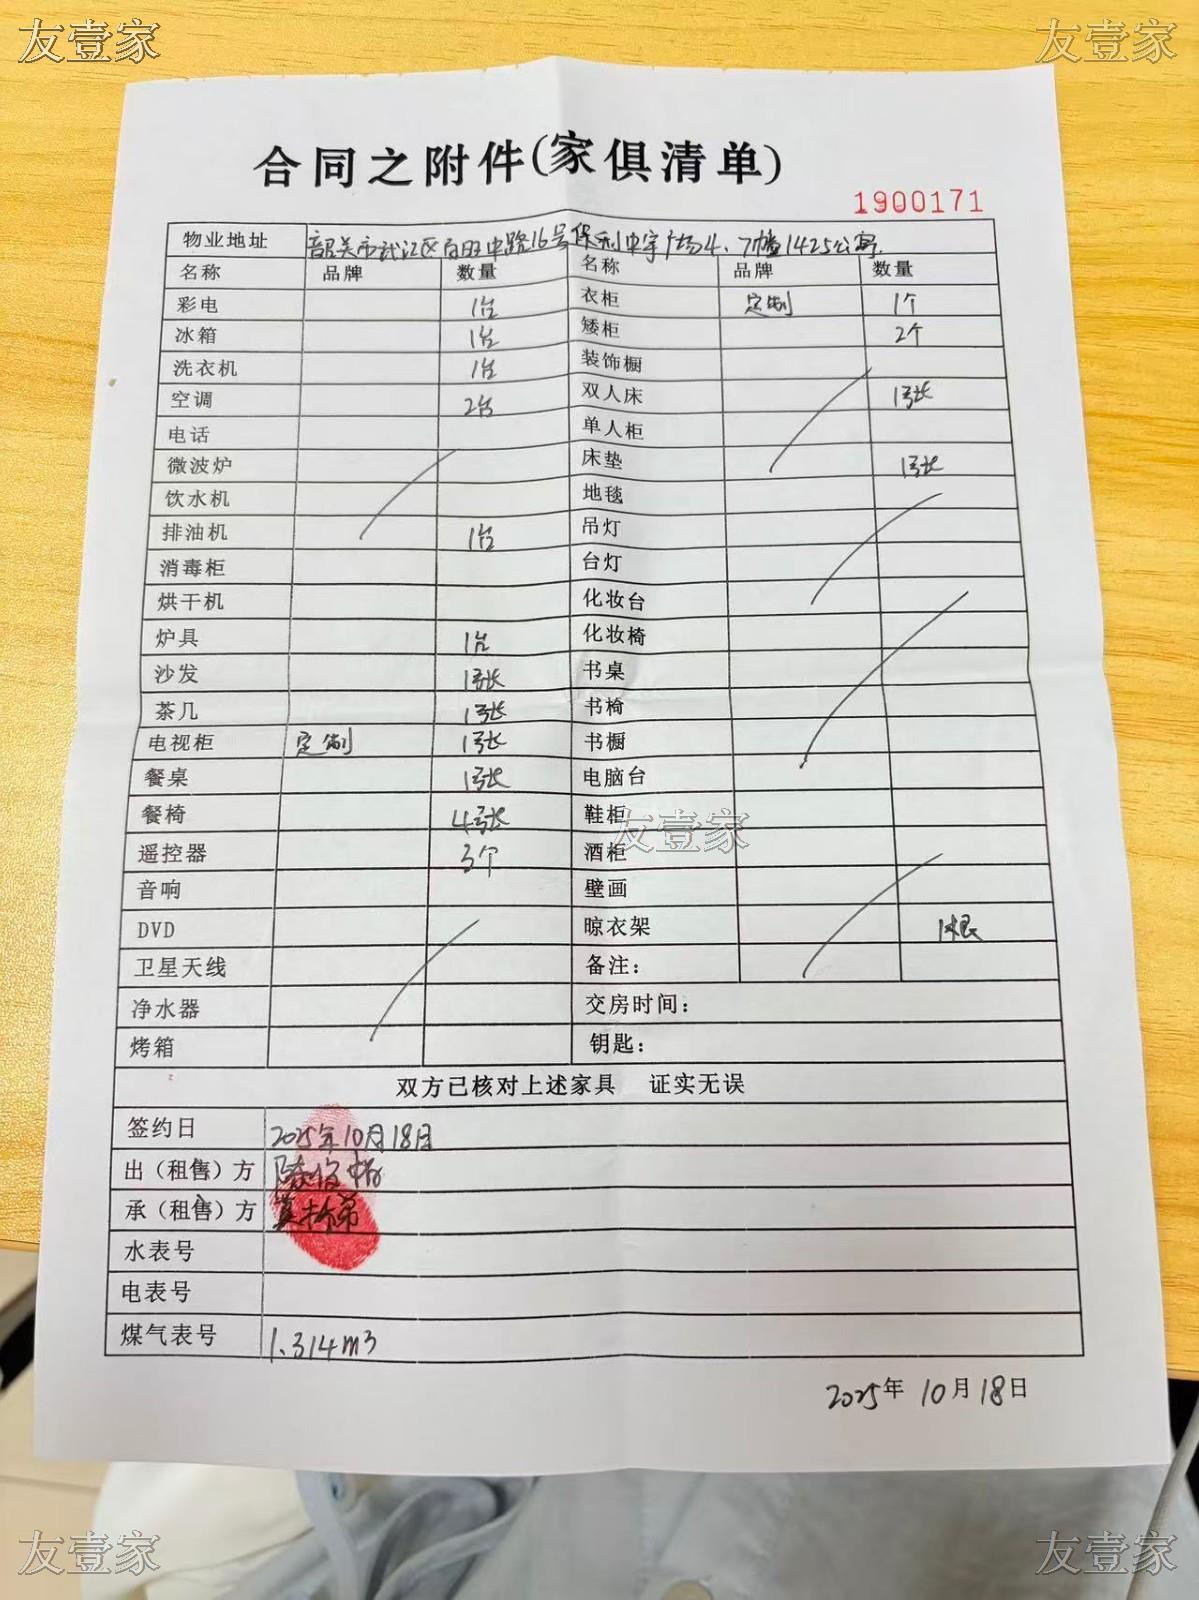 友壹家 友壹家
合同之附件(家俱清单)
1900171
物业地址 韶关市武江区百旺中路16号保利中宇广场4、7幢1425公寓
名称 品牌 数量 名称 品牌 数量
彩电 1台 衣柜 定制 1个
冰箱 1台 矮柜 2个
洗衣机 1台 装饰橱
空调 2台 双人床 1张
电话 单人柜
微波炉 床垫 1张
饮水机 地毯
排油机 1台 吊灯
消毒柜 台灯
烘干机 化妆台
炉具 1台 化妆椅
沙发 1张 书桌
茶几 1张 书椅
电视柜 定制 1张 书橱
餐桌 1张 电脑台
餐椅 4张 鞋柜
友壹家
遥控器 3个 酒柜
音响 壁画
DVD 晾衣架 1根
卫星天线 备注：
净水器 交房时间：
烤箱 钥匙：
双方已核对上述家具 证实无误
签约日 2025年10月18日
出（租售）方
承（租售）方
水表号
电表号
煤气表号 1.314m3
2025年 10月18日
友壹家 友壹家